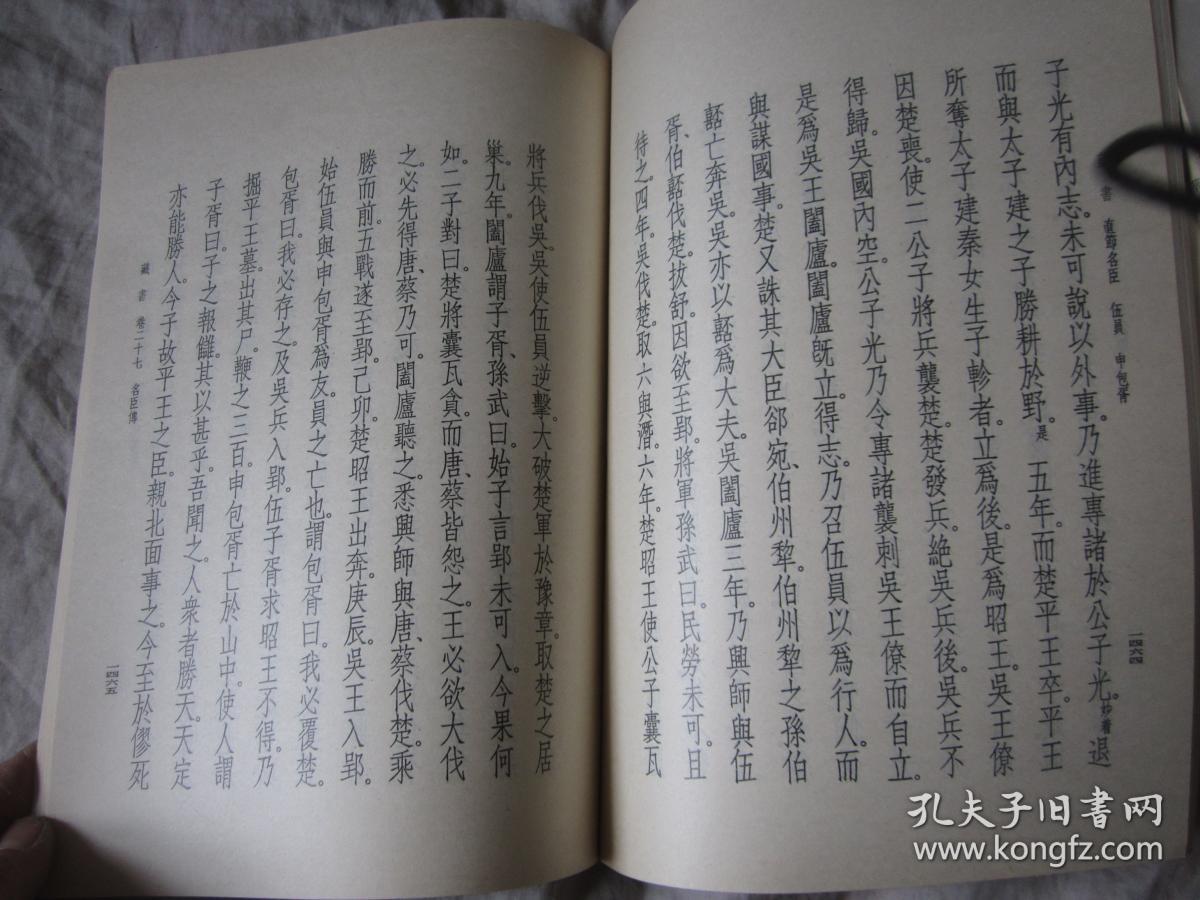 書 直節名臣 伍員 申包胥
一四六四
子光有內志。未可說以外事。乃進專諸於公子光。妙着退
而與太子建之子勝耕於野。是五年。而楚平王卒。平王
所奪太子建秦女生子軫者。立爲後。是爲昭王。吳王僚
因楚喪。使二公子將兵襲楚。楚發兵。絕吳兵後。吳兵不
得歸。吳國內空。公子光乃令專諸襲刺吳王僚而自立。
是爲吳王闔廬。闔廬既立。得志。乃召伍員以爲行人。而
與謀國事。楚又誅其大臣郤宛、伯州犂。伯州犂之孫伯
嚭亡奔吳。吳亦以嚭爲大夫。吳闔廬三年。乃興師與伍
胥、伯嚭伐楚。拔舒。因欲至郢。將軍孫武曰。民勞未可。且
待之。四年。吳伐楚。取六與潛。六年。楚昭王使公子囊瓦
將兵伐吳。吳使伍員逆擊。大破楚軍於豫章。取楚之居
巢。九年。闔廬謂子胥、孫武曰。始子言郢未可入。今果何
如。二子對曰。楚將囊瓦貪。而唐、蔡皆怨之。王必欲大伐
之。必先得唐、蔡乃可。闔廬聽之。悉興師與唐、蔡伐楚。乘
勝而前。五戰遂至郢。己卯。楚昭王出奔。庚辰。吳王入郢。
始伍員與申包胥爲友。員之亡也。謂包胥曰。我必覆楚。
包胥曰。我必存之。及吳兵入郢。伍子胥求昭王不得。乃
掘平王墓。出其尸。鞭之三百。申包胥亡於山中。使人謂
子胥曰。子之報讎。其以甚乎。吾聞之。人衆者勝天。天定
亦能勝人。今子故平王之臣。親北面事之。今至於僇死
藏書 卷二十七 名臣傳
一四六五
孔夫子旧书网
www.kongfz.com